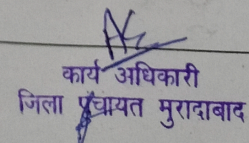 कार्य अधिकारी
जिला पंचायत मुरादाबाद